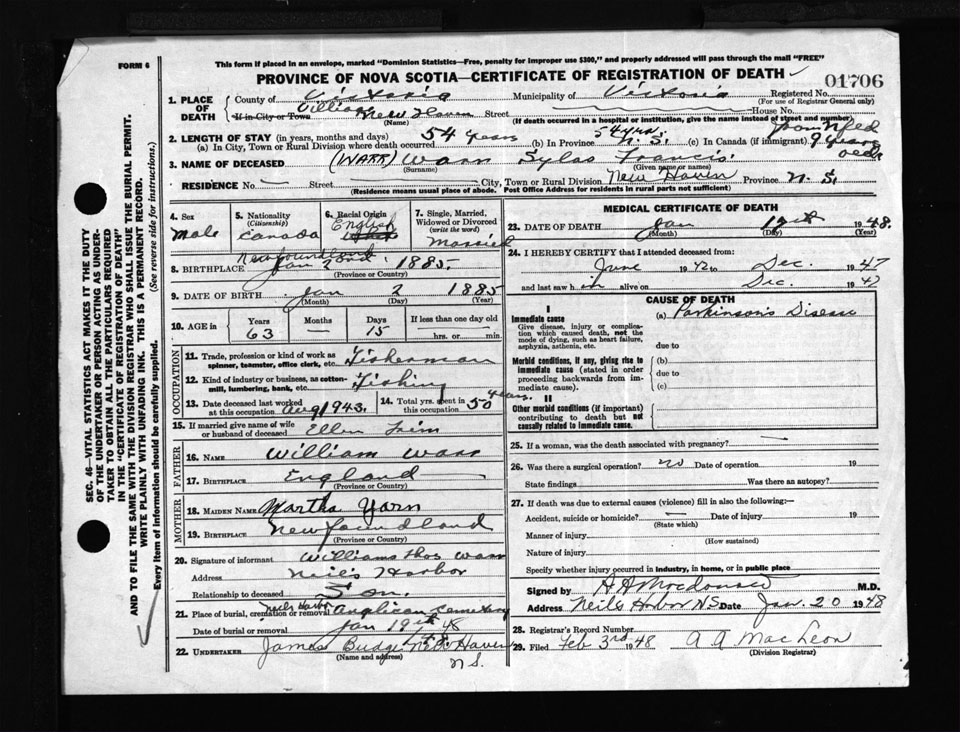 FORM 6
This form if placed in an envelope, marked "Dominion Statistics—Free, penalty for improper use $300," and properly addressed will pass through the mail "FREE"
PROVINCE OF NOVA SCOTIA—CERTIFICATE OF REGISTRATION OF DEATH
01706
1. PLACE OF DEATH
County of Victoria Municipality of Victoria Registered No.
(For use of Registrar General only)
If in City or Town Village New Haven Street House No.
(Name) (If death occurred in a hospital or institution, give the name instead of street and number)
2. LENGTH OF STAY (in years, months and days) 54 years 54 yrs. from Nfld
(a) In City, Town or Rural Division where death occurred (b) In Province N.S. (c) In Canada (if immigrant) 9 years
3. NAME OF DECEASED (WARR) Warr Sylas Francis
(Surname) (Given name or names)
RESIDENCE No. Street City, Town or Rural Division New Haven Province N.S.
(Residence means usual place of abode. Post Office Address for residents in rural parts not sufficient)
4. Sex
Male
5. Nationality
(Citizenship)
Canada
6. Racial Origin
English
7. Single, Married, Widowed or Divorced
(write the word)
Married
8. BIRTHPLACE Newfoundland
Jan 2nd 1885.
(Province or Country)
9. DATE OF BIRTH Jan 2 1885
(Month) (Day) (Year)
10. AGE in
Years Months Days If less than one day old
63 — 15 hrs. or min.
OCCUPATION
11. Trade, profession or kind of work as spinner, teamster, office clerk, etc. Fisherman
12. Kind of industry or business, as cotton-mill, lumbering, bank, etc. Fishing
13. Date deceased last worked at this occupation Aug 1943.
14. Total yrs. spent in this occupation 50 years.
15. If married give name of wife or husband of deceased Ellen
FATHER
16. Name William Warr
17. Birthplace England
(Province or Country)
MOTHER
18. Maiden Name Martha Yarn
19. Birthplace Newfoundland
(Province or Country)
20. Signature of informant Williams Thos Warr
Address Neil's Harbor
Relationship to deceased Son.
21. Place of burial, cremation or removal Neils Harbor Anglican Cemetery
Date of burial or removal Jan 19th 48
22. UNDERTAKER James Budge New Haven
(Name and address) N.S.
MEDICAL CERTIFICATE OF DEATH
23. DATE OF DEATH Jan 19 48.
(Month) (Day) (Year)
24. I HEREBY CERTIFY that I attended deceased from:
June 1942 to Dec. 1947
and last saw him alive on Dec. 1947
CAUSE OF DEATH
I
Immediate cause (a) Parkinson's Disease
Give disease, injury or complication which caused death, not the mode of dying, such as heart failure, asphyxia, asthenia, etc.
due to
Morbid conditions, if any, giving rise to immediate cause (stated in order proceeding backwards from immediate cause).
(b)
due to
(c)
II
Other morbid conditions (if important) contributing to death but not causally related to immediate cause.
25. If a woman, was the death associated with pregnancy? —
26. Was there a surgical operation? no Date of operation 19
State findings Was there an autopsy?
27. If death was due to external causes (violence) fill in also the following:—
Accident, suicide or homicide? — Date of injury 19
(State which)
Manner of injury
(How sustained)
Nature of injury
Specify whether injury occurred in industry, in home, or in public place
Signed by A A Macdonald M.D.
Address Neils Harbor N.S. Date Jan. 20 1948
28. Registrar's Record Number
29. Filed Feb 3rd 1948 A A MacLeon
(Division Registrar)
SEC. 46—VITAL STATISTICS ACT MAKES IT THE DUTY
OF THE UNDERTAKER OR PERSON ACTING AS UNDER-
TAKER TO OBTAIN ALL THE PARTICULARS REQUIRED
IN THE "CERTIFICATE OF REGISTRATION OF DEATH"
AND TO FILE THE SAME WITH THE DIVISION REGISTRAR WHO SHALL ISSUE THE BURIAL PERMIT.
WRITE PLAINLY WITH UNFADING INK. THIS IS A PERMANENT RECORD.
Every item of information should be carefully supplied. (See reverse side for instructions.)